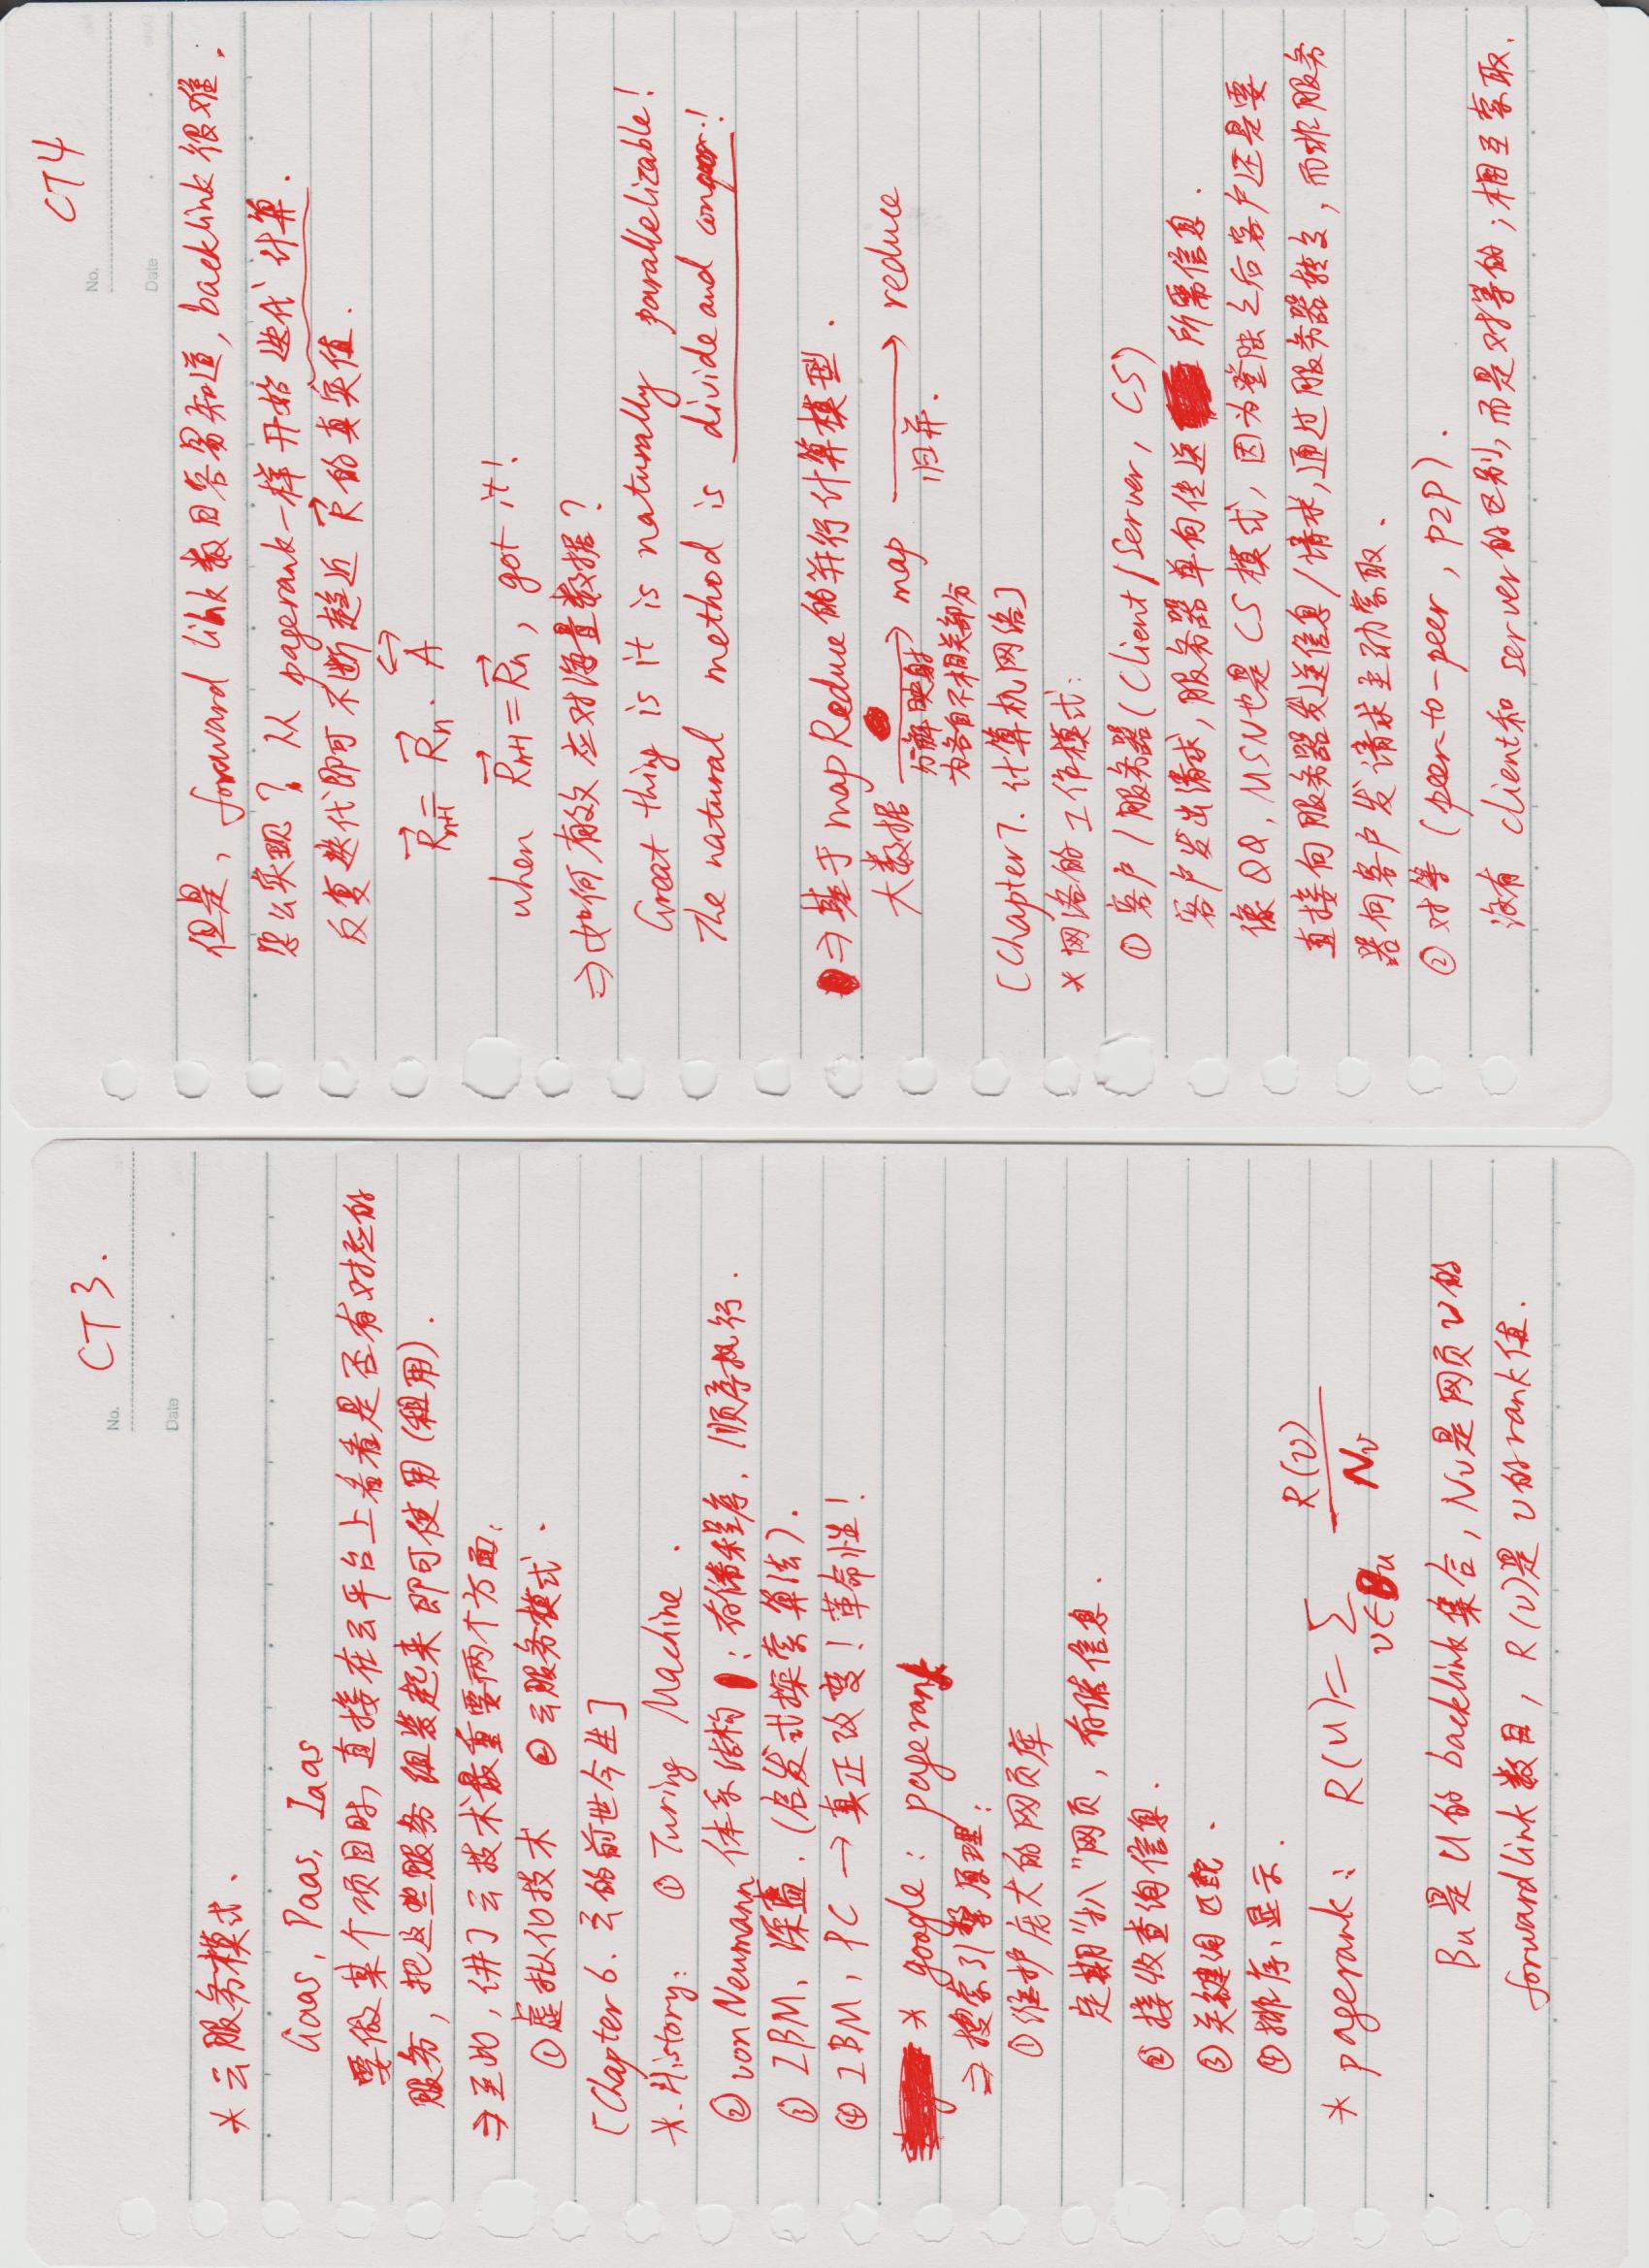 CT3.
No.
Date
* 云服务模式.
Gaas, Paas, Iaas
要做某个项目时, 直接在云平台上看看是否有对应的
服务, 把这些服务组装起来即可使用(租用).
⇒至此, 讲了云技术最重要两个方面:
①虚拟化技术 ②云服务模式.
[Chapter 6. 云的前世今生]
*. History: ① Turing Machine.
② von Neumann 体系结构: 存储程序. 顺序执行.
③ IBM, 深蓝. (启发式探索算法).
④ IBM, PC → 真正改变! 革命性!
* google: pagerank
⇒ 搜索引擎原理:
①维护庞大的网页库
定期"扒"网页, 存储信息.
② 接收查询信息.
③ 关键词匹配.
④ 排序, 显示.
* pagerank: R(u)= ∑ v∈Bu R(v)/Nv
Bu是u的backlink集合, Nv是网页v的
forwardlink数目, R(v)是v的rank值.
CT4
No.
Date
但是, forward link数目容易知道, backlink很难.
怎么实现? 从pagerank一样开始迭代计算.
反复迭代即可不断趋近 R⃗ 的真实值.
R⃗n+1 = R⃗n · A⃡
when R⃗n+1 = R⃗n, got it!
⇒如何有效应对海量数据?
Great thing is it is naturally parallelizable!
The natural method is divide and conquer!
⇒ 基于map Reduce的并行计算模型.
大数据 → map → reduce
分解映射 归并.
为各自不相关部分
[Chapter 7. 计算机网络]
* 网络的工作模式:
① 客户/服务器(Client/Server, CS)
客户发出请求, 服务器单向传送所需信息.
像QQ, MSN也是CS模式, 因为登陆之后客户还是要
直接向服务器发送信息/请求, 通过服务器转交, 而非服务
器向客户发请求主动索取.
② 对等 (peer-to-peer, p2p).
没有 client和 server的区别, 而是对等的; 相互索取.